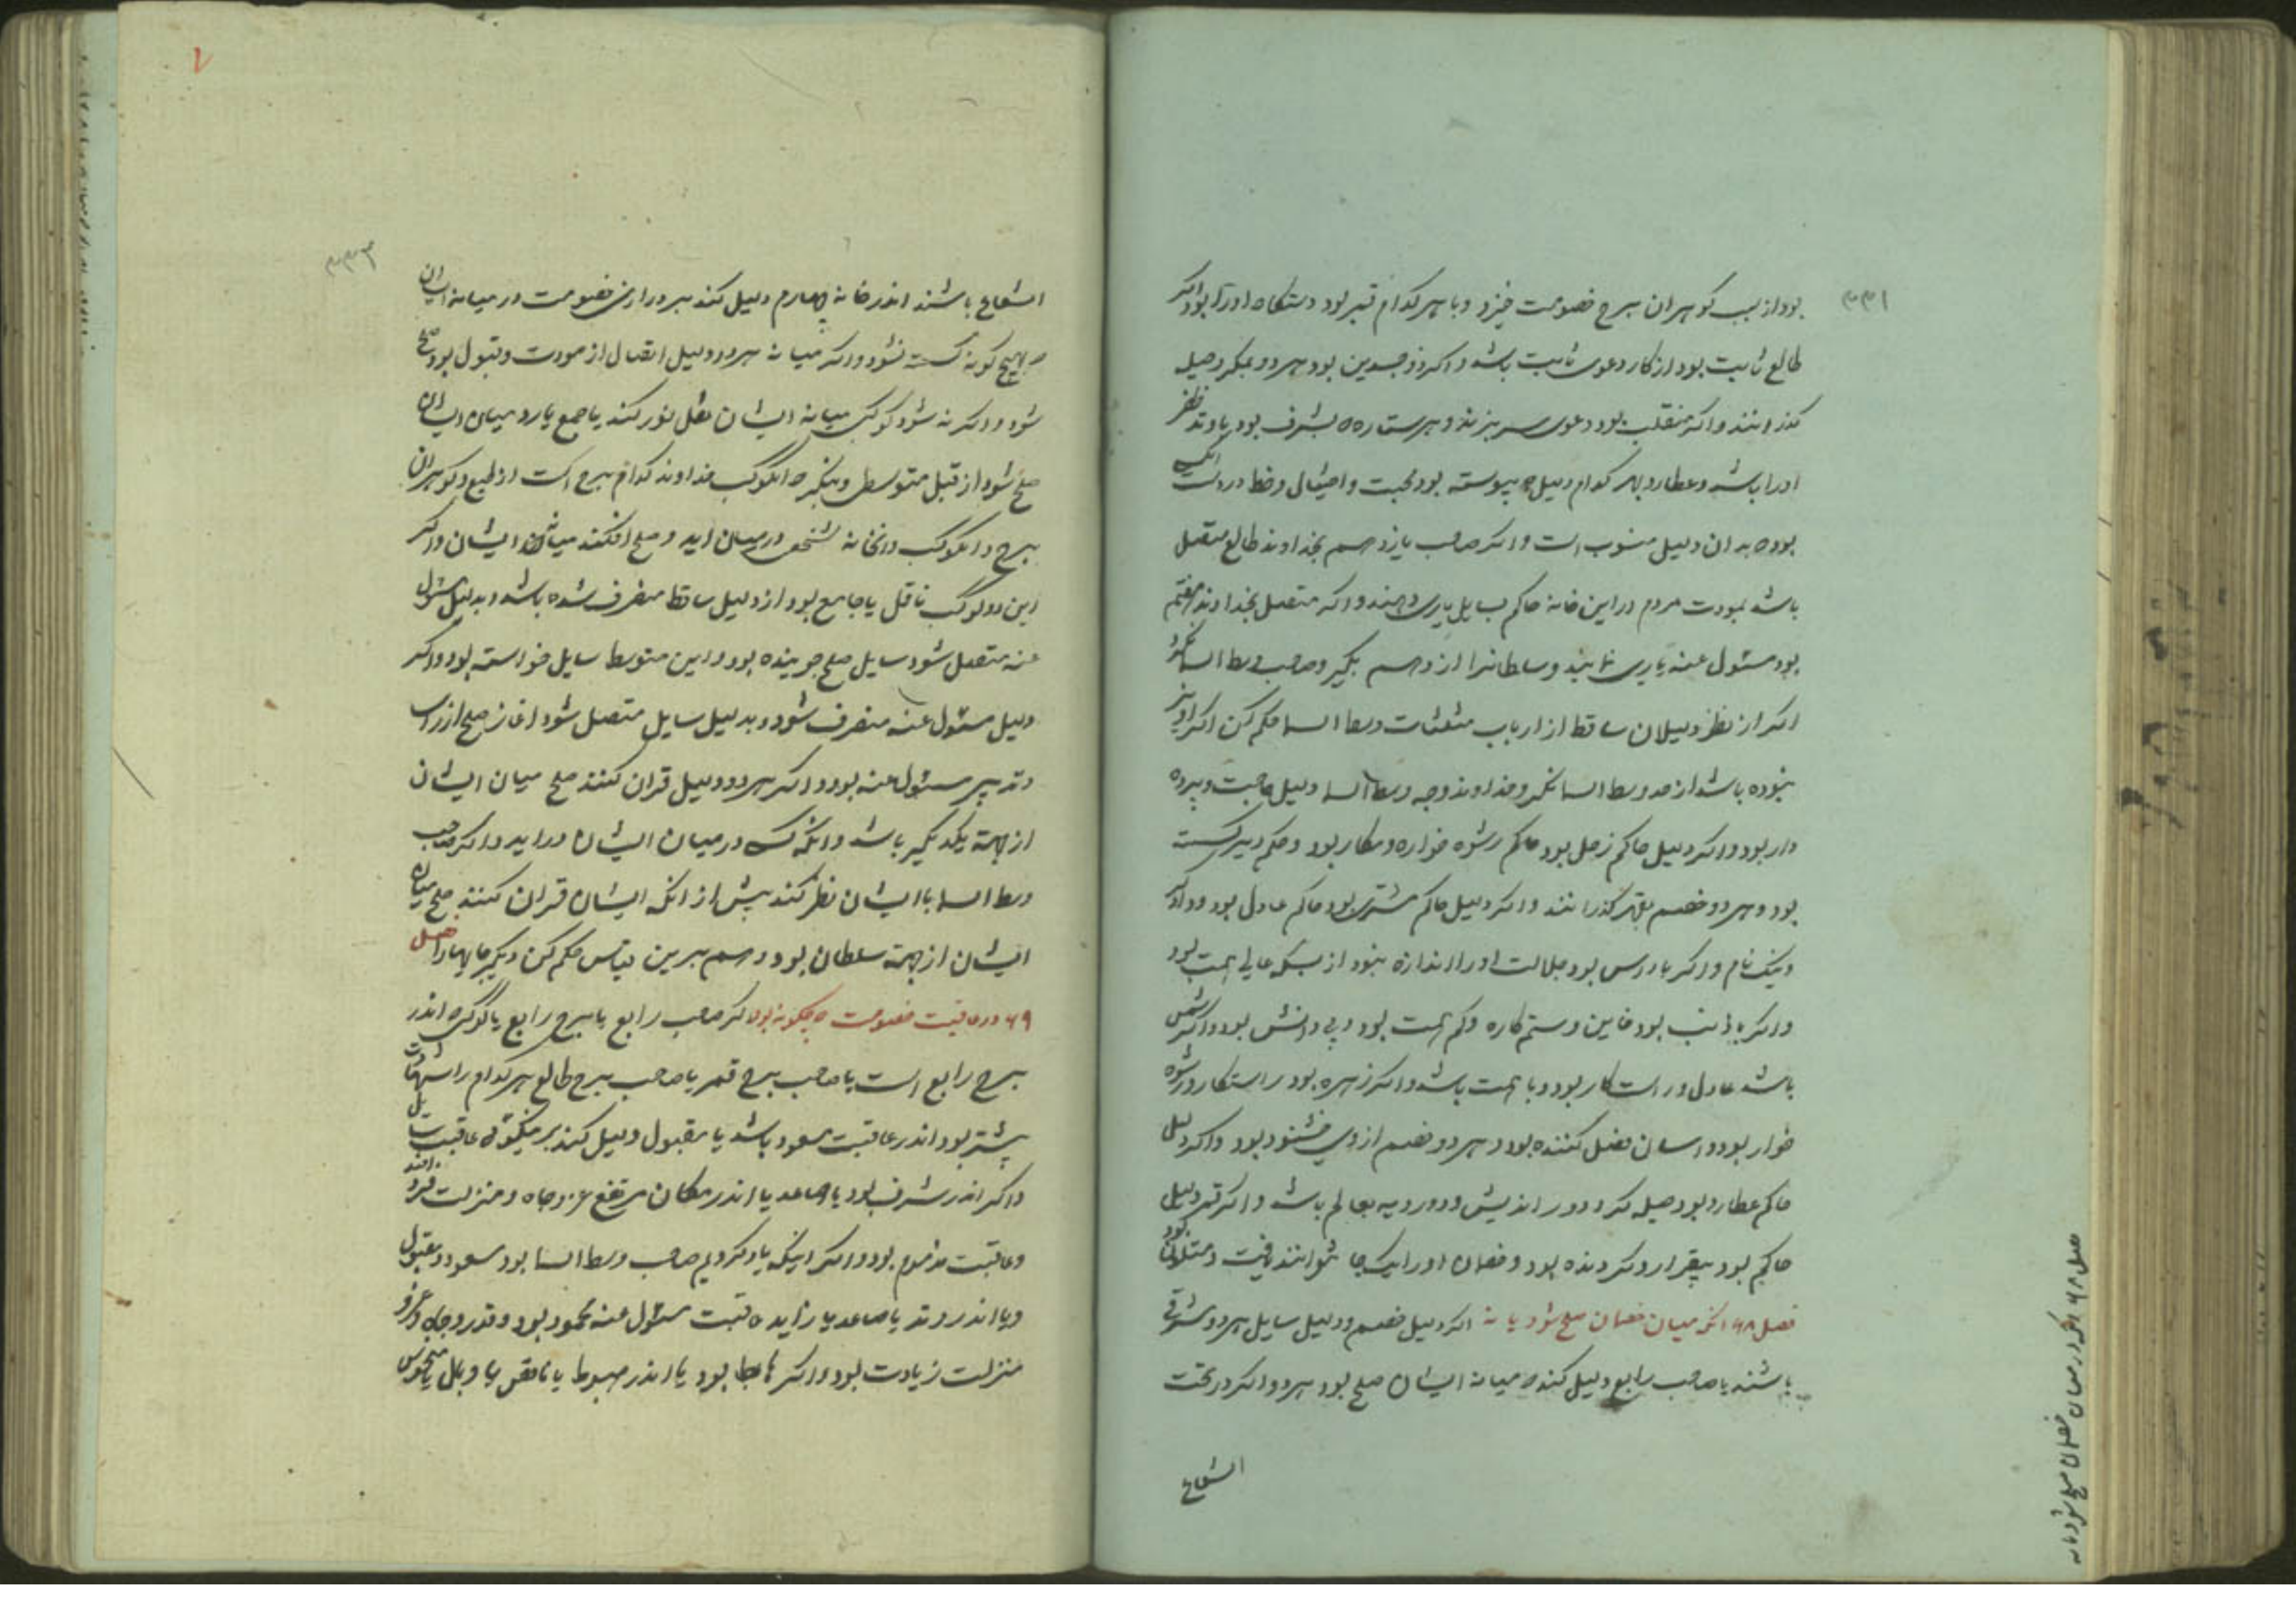 بود از سبب گوهران برج خصومت خیزد و با هر کدام قمر بود دستگاه او را بود و اگر
طالع ثابت بود از کار دعوی ثابت باشد و اگر ذوجسدین بود هر دو بمکر و حیله
گذرانند و اگر منقلب بود دعوی سر بنزند و هر ستاره که بشرف بود یا وتد ظفر
او را باشد و عطارد بهر کدام دلیل که پیوسته بود محبت و احتیال و خط در دست
بود که بدان دلیل منسوب است و اگر صاحب یازدهم بخداوند طالع متصل
باشد بمودت مردم در این خانه حاکم سایل یاری دهند و اگر متصل بخداوند هفتم
بود مسئول عنه یاری نمایند و سلطانرا از دهم بگیر و صاحب وسط السما نگر
اگر از نظر دلیلان ساقط از ارباب مثلثات وسط السما حکم کن اگر او نیز
نبوده باشد از حد وسط السما نگر و خداوند وجه وسط السما دلیل حاجبت و پرده
دار بود و اگر دلیل حاکم زحل بود حاکم رشوه خواره و مکار بود و حکم
بود و هر دو خصم بقهر گذرانند و اگر دلیل حاکم مشتری بود حاکم عادل بود
و نیک نام و اگر با راس بود جلالت او را اندازه نبود از بسکه عالی همت بود
و اگر با ذنب بود خاین و ستم کاره و کم همت بود و بی دانش بود و اگر شمس
باشد عادل و راست کار بود و با همت باشد و اگر زهره بود راستکار و رشوه
خوار بود و آسان فصل کننده بود و هر دو خصم از وی خشنود بود و اگر دلیل
حاکم عطارد بود حیله گر و دور اندیش و دورویه بعالم باشد و اگر قمر دلیل
حاکم بود بیقرار و گردنده بود و خصمان او را یک جا نتوانند یافت و متلون بود
فصل ۶۸ اندر میان خصمان صلح شود یا نه اگر دلیل خصم و دلیل سایل هر دو مشرقی
باشند یا صاحب رابع دلیل کند که میانه ایشان صلح بود هر دو و اگر در تحت
الشعاع
۳۳۱
فصل ۶۸ اندر میان خصمان صلح شود یا نه
۳۳۲
الشعاع باشند اندر خانه چهارم دلیل کند بر درازی خصومت در میانه ایشان
و هیچ گونه گسسته نشود و اگر میانه هر دو دلیل اتصال از مودت و قبول بود صلح
شود و اگر نه شود کوکب میانه ایشان نقل نور کند یا جمع یا رد میان ایشان
صلح شود از قبل متوسطی و بنگر که آنکوکب خداوند کدام برج است از طبع و گوهران
برج و آنکوکب و آنخانه شخص در میان آید و صلح افکند میانه ایشان و اگر
این دو کوکب ناقل یا جامع بود از دلیل ساقط منصرف شده باشد و بدلیل مسئول
عنه متصل شود سایل صلح جوینده بود و این متوسط سایل خواسته بود و اگر
دلیل مسئول عنه منصرف شود و بدلیل سایل متصل شود آغاز صلح از رای
و تدبیر مسئول عنه بود و اگر هر دو دلیل قران کنند صلح میان ایشان
از جهة یکدیگر باشد و آنکه کسی در میان ایشان در آید و اگر صاحب
وسط السما با ایشان نظر کند پیش از آنکه ایشان قران کنند صلح میان
ایشان از جهة سلطان بود و رسم برین قیاس حکم کن دیگر جایها را فصل
۶۹ در عاقبت خصومت که چگونه بود اگر صاحب رابع یا برج رابع یا کوکبی که اندر
برج رابع است یا صاحب برج قمر یا صاحب برج طالع هر کدام را شهادت
بیشتر بود اندر عاقبت مسعود باشد یا مقبول دلیل کند بر نیکوئی عاقبت
و اگر اندر شرف بود یا صاعد یا اندر مکان مرتفع عز و جاه و منزلت
و عاقبت مذموم بود و اگر اینکه یاد کردیم صاحب وسط السما بود مسعود و مقبول
و یا اندر وتد یا صاعد یا زایده عاقبت مسئول عنه محمود بود و قدر و جاه و عز و
منزلت زیادت بود و اگر هابط بود یا اندر هبوط یا ناقص یا وبال یا منحوس